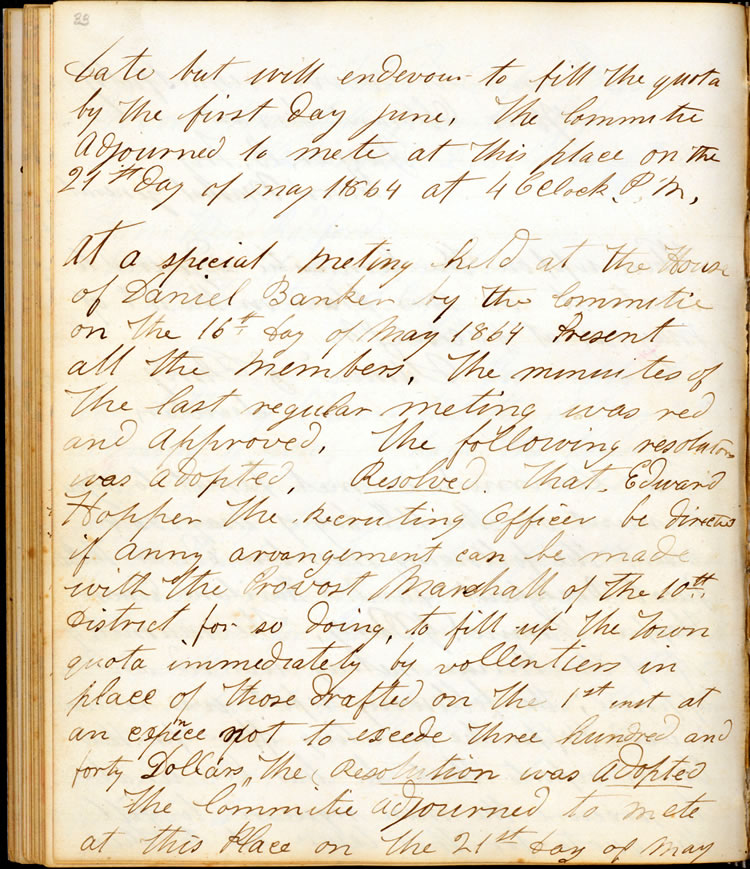 late but will endevour to fill the quota
by the first day june. The Committie
Adjourned to mete at this place on the
21st day of may 1864 at 4 Oclock P.M.
At a special meting held at the House
of Daniel Banker by the Committie
on the 16th day of May 1864 Present
all the members. The minuites of
the last regular meting was red
and approved. The following resolution
was adopted. Resolved. That Edward
Hopper the recruiting Officer be directed
if anny arrangement can be made
with the Provost Marshall of the 10th
District for so doing, to fill up the Town
quota immediately by vollentiers in
place of those drafted on the 1st inst at
an expence not to excede three hundred and
forty Dollars, The Resolution was adopted
The Committie adjourned to mete
at this Place on the 21st day of May